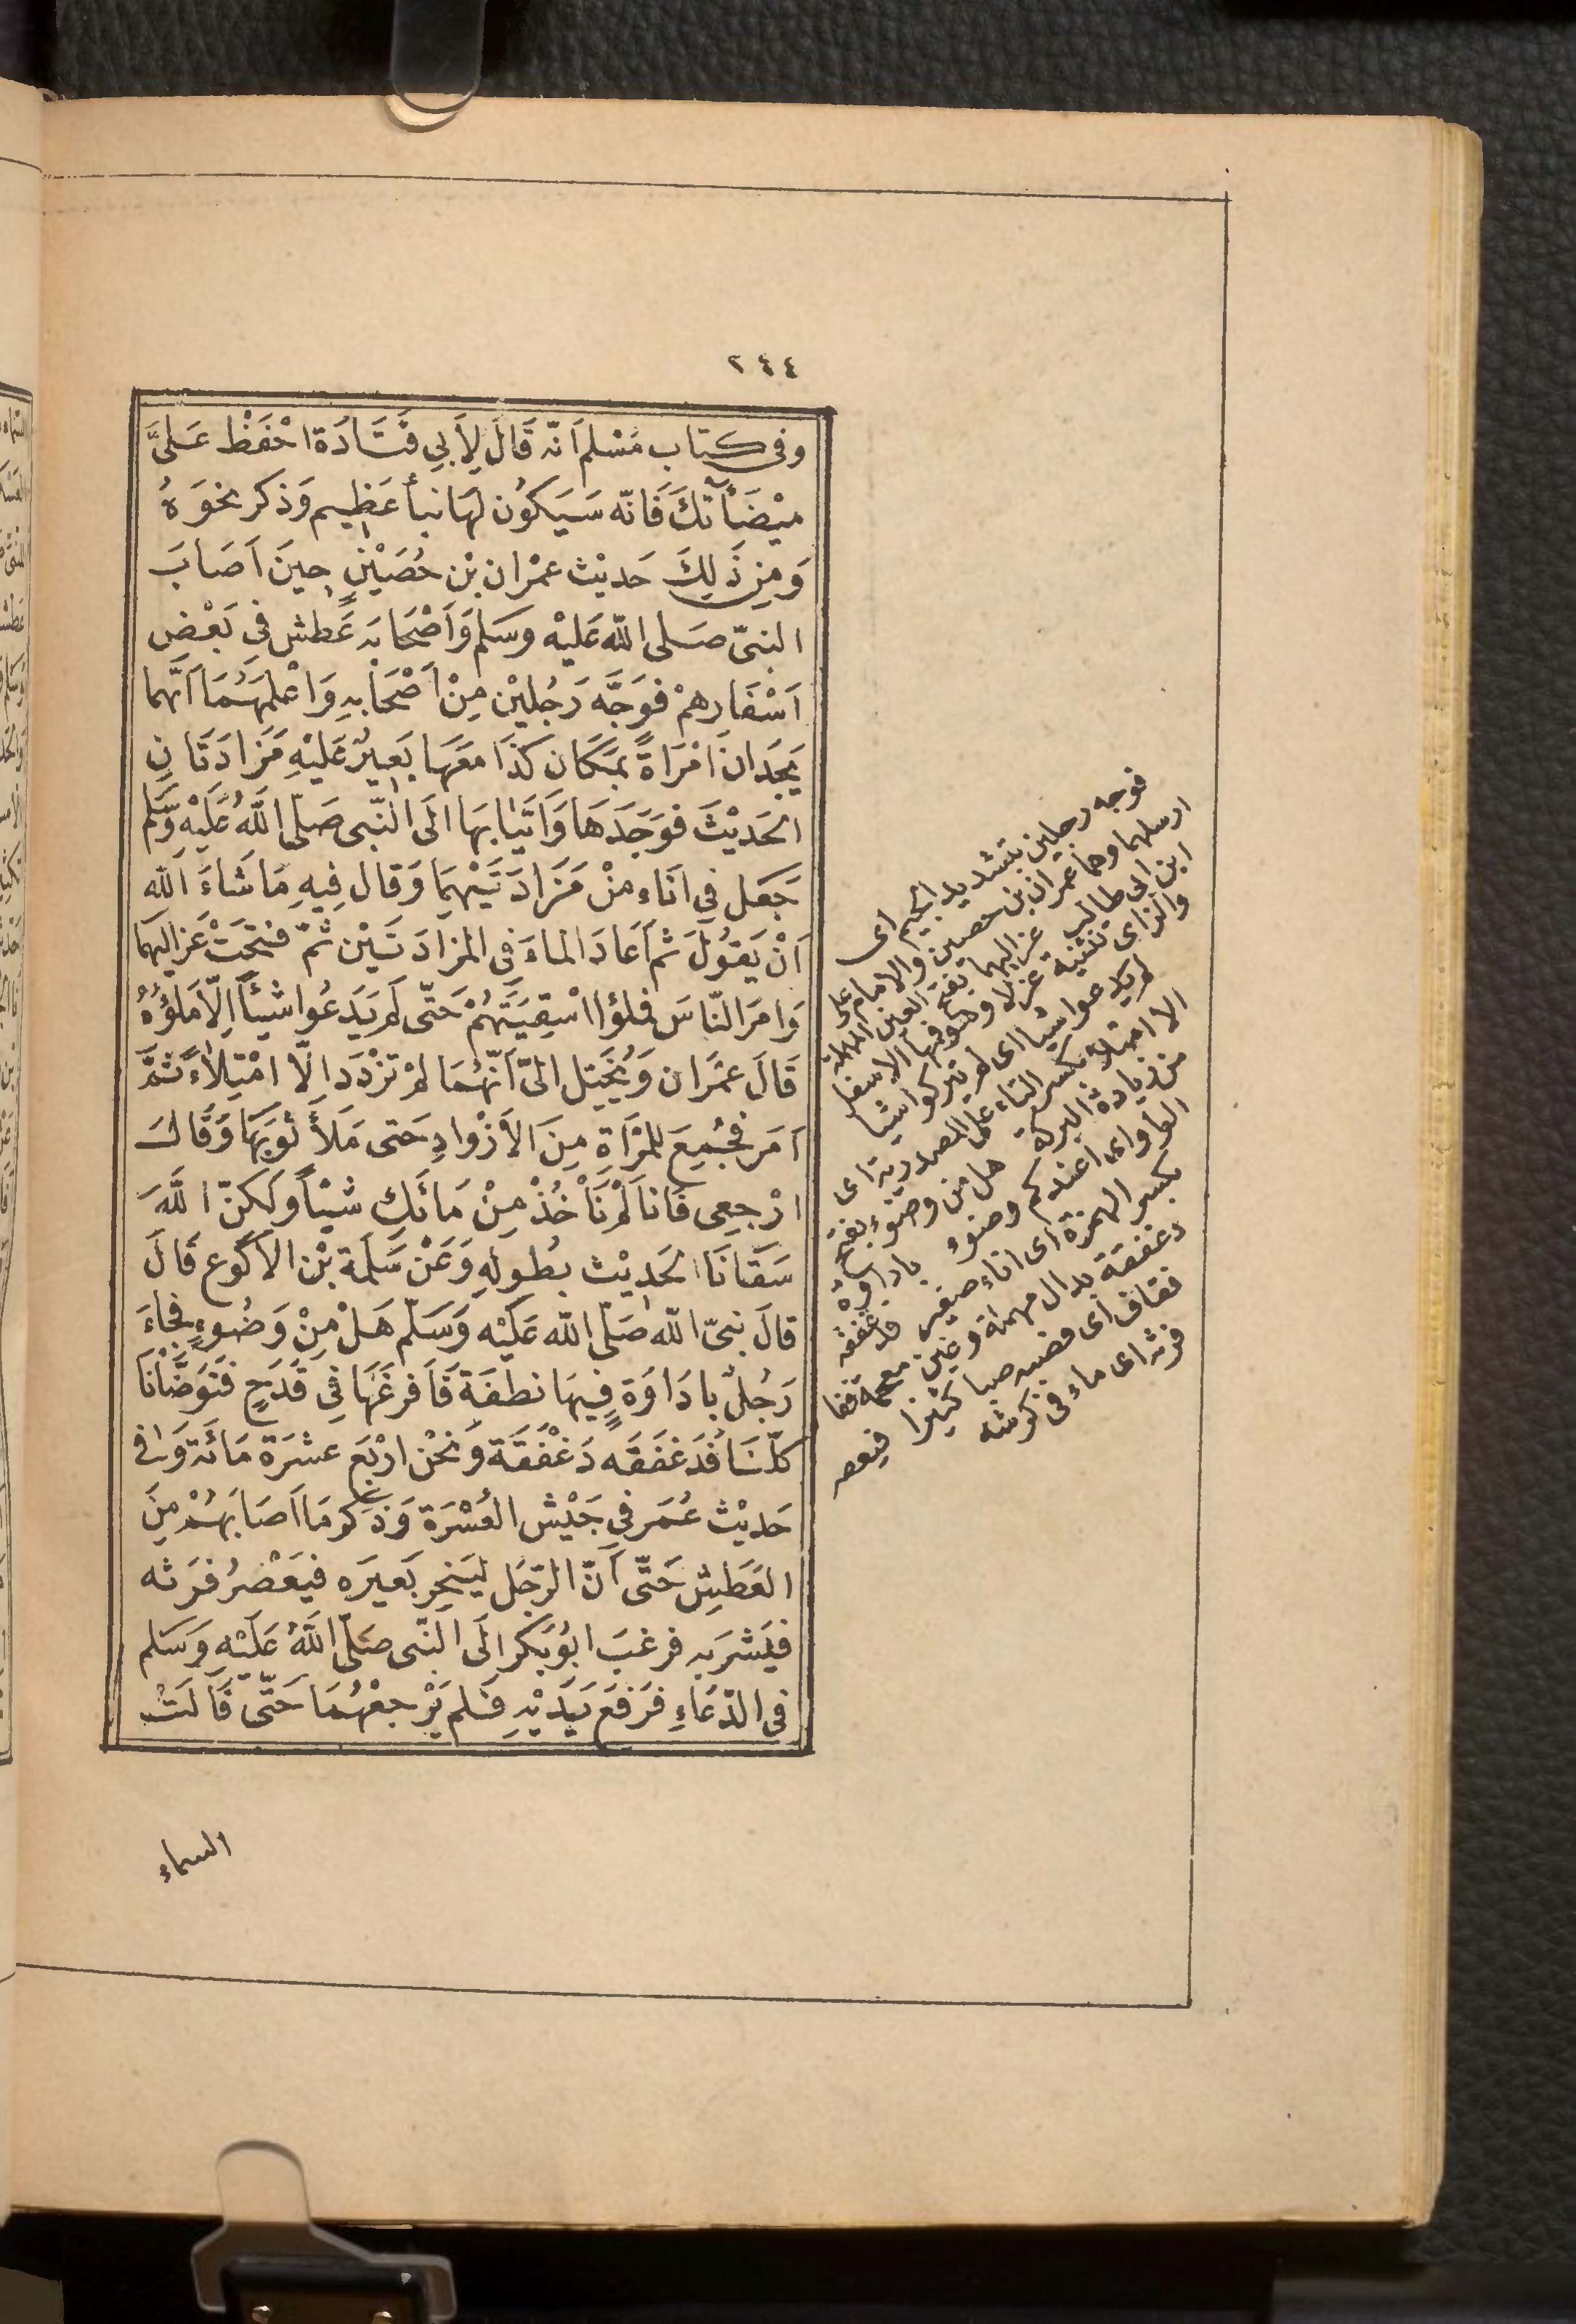 ٢٤٤
وفى كتاب مُسْلم اَنّه قَالَ لِأَبِي قَتَادَة احْفَظْ عَلىَّ
ميْضَأتَكَ فَانّه سَيَكوُن لهَا نبأ عَظِيم وَذكر نحْوَهُ
وَمِن ذَلِكَ حَديْث عمْران بْن حُصَيْنٍ حِينَ اَصَابَ
النبىّ صَلى اللّه عَليْه وسَلم وَاَصْحَابَه عَطش فى بَعْضِ
اَسْفَارهمْ فوَجَّه رَجُليْن مِنْ اَصْحَابِهِ وَاعْلمَهُمَا اَنّهما
يَجدَان امْرَاةً بمَكَان كَذَا مَعَهَا بَعِيرٌ عَليْهِ مَزادَتَانِ
الحَديْثَ فوَجَدَهَا وَاَتَيَا بهَا الَى النّبى صَلّى اللّهُ عَلَيْهِ وَسَّلم
جَعَل فى انَاء منْ مَزَادَتَيْهِمَا وَقال فِيهِ مَا شَاءَ اَللّه
اَنْ يَقوُلَ ثم اَعَادَ الماءَ فى المزادَتَيْن ثمّ فتحَتْ عَزاليهَما
وَامَرَ النّاسَ فملؤا اسْقِيَتَهُمْ حَتّى لَم يَدَعُوا شيْأً اِلّا مَلؤُهُ
قَالَ عمْرَان وَيُخَيّل الىّ اَنّهُمَا لمْ تزْدَدَا الّا امْتِلَاءً ثمَّ
اَمَر فجُمِعَ لِلمرْاَةِ مِنَ الأزْوادِ حَتى مَلأَ ثوبَهَا وَقَالَ
ارْجِعِى فَانا لَمْ نَاْخُذْ مِنْ مَائكِ شيْأً وَلكنّ اللّهَ
سَقَانَا الحَدِيْث بطُولِهِ وَعَنْ سَلَمَة بْن الاَكْوع قَالَ
قالَ نبىّ اللّه صَلّى اللّه عَلَيْه وَسَلّم هَلْ مِنْ وَضُوءٍ فجَاءَ
رَجُلٌ بادَاوَة فِيهَا نطفَة فَاَفرغَهَا فِى قَدَحٍ فتَوَضَّأنَا
كلّنَا نُدَغفقَه دَغْفَقَة وَنَحْن ارْبَع عشرَة مَائة وَفى
حَديْث عُمَر فى جَيْش العُسْرَة وَذكر مَا اَصَابَهُمْ مِنَ
العَطِش حَتّى اَنّ الرّجُل ليَنحر بَعيرَه فيَعْصرُ فرَثه
فيَشرَبه فرغبَ ابُوبَكر الَى النّبى صَلّى اللّهُ عَلَيْه وَسَلم
فى الدّعَاءِ فرَفَعَ يَدَيْهِ فَلم يَرْجعْهُمَا حَتّى قَالَتْ
السماء
فوجه رجلين بتشديد الجيم اى
ارسلهما وهما عمران بن حصين والامام على
ابن ابى طالب عزاليهما بفتح العين المهملة
والزاى تثنية عزلا وهو فمها الاسفل
لم يدعوا شيأ اى لم يتركوا شيا
الا امتلاء بكسر التاء على المصدرية اى
من زيادة البركة هل من وضوء بفتح
الواو اى اعندكم وضوء باداوة
بكسر الهمزة اى اناء صغير فدغفقه
دغفقة بدال مهملة وغين معجمة ففا
فقاف اى فصبه صبا كثيرا فيعصر
فرثه اى ماء فى كرشه